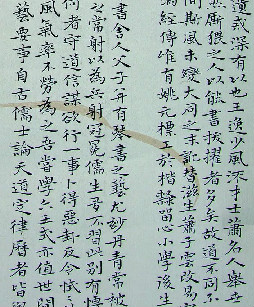 遺或深有以也王逸少風流才士蕭名人舉世
厮猥之人以能書拔擢者多矣故道不同不
間斯風未變大同之末訛替滋生蕭子雲改易
經傳唯有姚元標工於楷隸留心小學後生
書舍人父子并有琴書之藝尤妙丹青常被
之常射以為兵射冠冕儒生多不習此別有博
何者守道信謀欲行一事卜得惡卦反令怵
風氣率不勞為之吾嘗學六壬式亦值世間
藝要事自古儒士論天道定律曆者皆